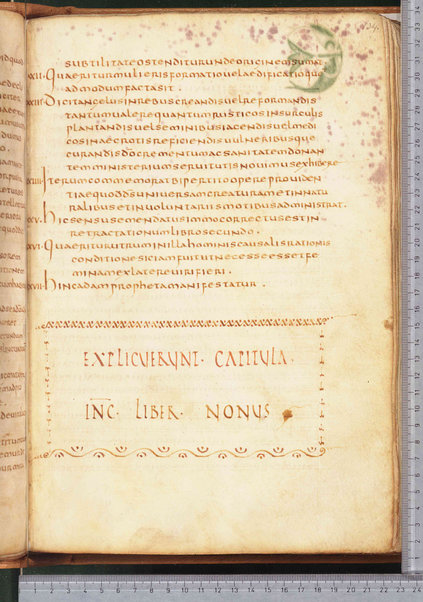 subtilitate ostenditur unde originem sumat
XXII. Quaeritur mulieris formatio vel aedificatio quo
admodum facta sit.
XXIII. Dicit angelus in rebus creandis vel reformandis
tantum valere quantum rusticos in surculis
plantandis vel seminibus iaciendis vel medi
cos in aecrotis reficiendis vulneribusque
curandis docrementum ac sanitatem donan
tem ministerium servitutis novimus exhibere
Iterum commemorat bipertito opere providen
tiae quod ds universam creaturam et in natu
ralibus et in voluntariis motibus administrat.
XXV. Hic sensus emendatus immo correctus est in
retractationum libro secundo.
XXVI. Quaeritur utrum in illa hominis causalis rationis
conditione sic iam fuit ut necesse esset fe
minam ex latere viri fieri.
XXVII. Hinc adam propheta manifestatur.
EXPLICUERUNT · CAPITULA ·
INC · LIBER · NONUS